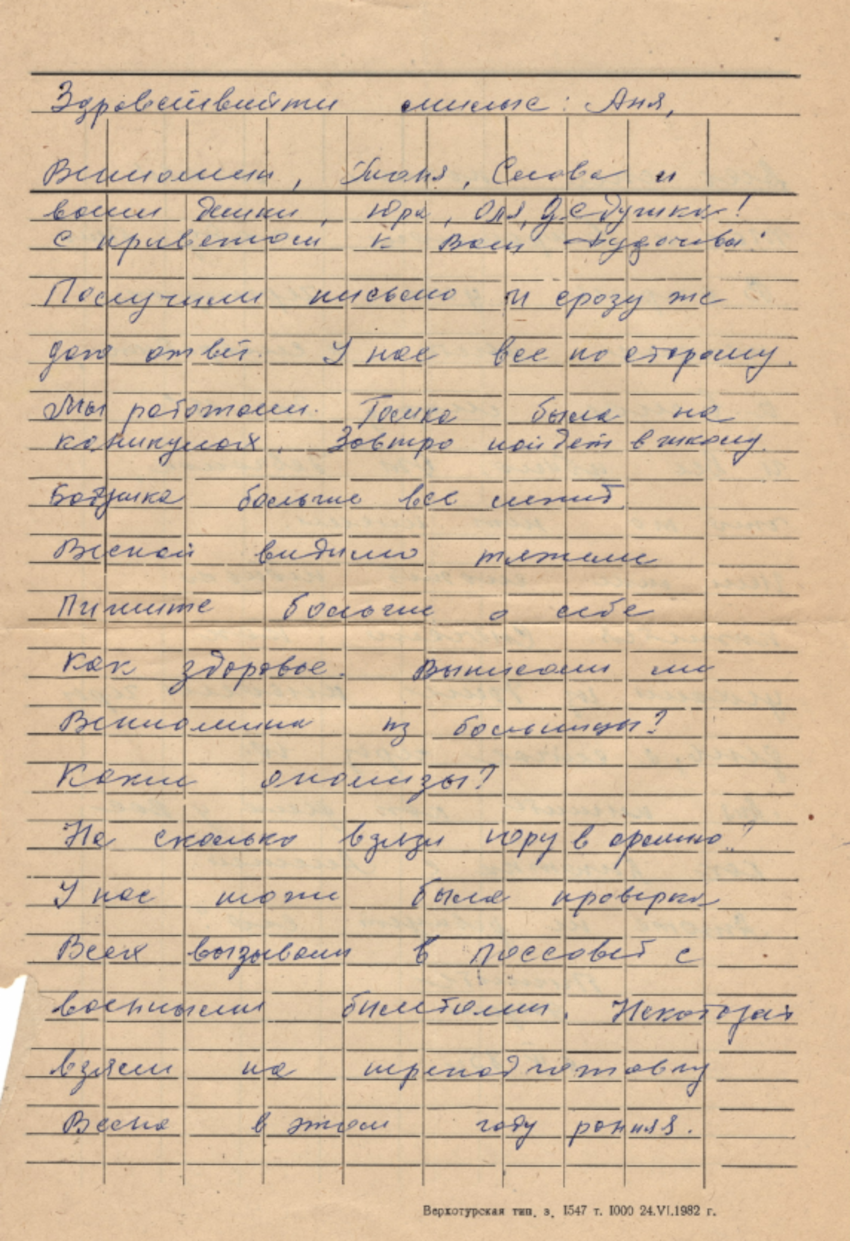 Здравствуйте милые: Аня,
Вениамин, Таня, Слава и
ваши детки, Юра, Оля, Дедушка!
с приветом к Вам
Получили письмо и сразу же
даю ответ. У нас все по старому.
Мы работаем. Томка была на
каникулах. Завтра пойдет в школу.
Бабушка больше все лежит.
Весной видимо тяжелее
Пишите больше о себе
Как здоровье. Выписали ли
Вениамина из больницы?
Какие анализы?
На сколько взяли Юру в армию?
У нас тоже была проверка
Всех вызывали в поссовет с
военными билетами. Некоторых
взяли на переподготовку
Весна в этом году ранняя.
Верхотурская тип. з. 1547 т. 1000 24.VI.1982 г.